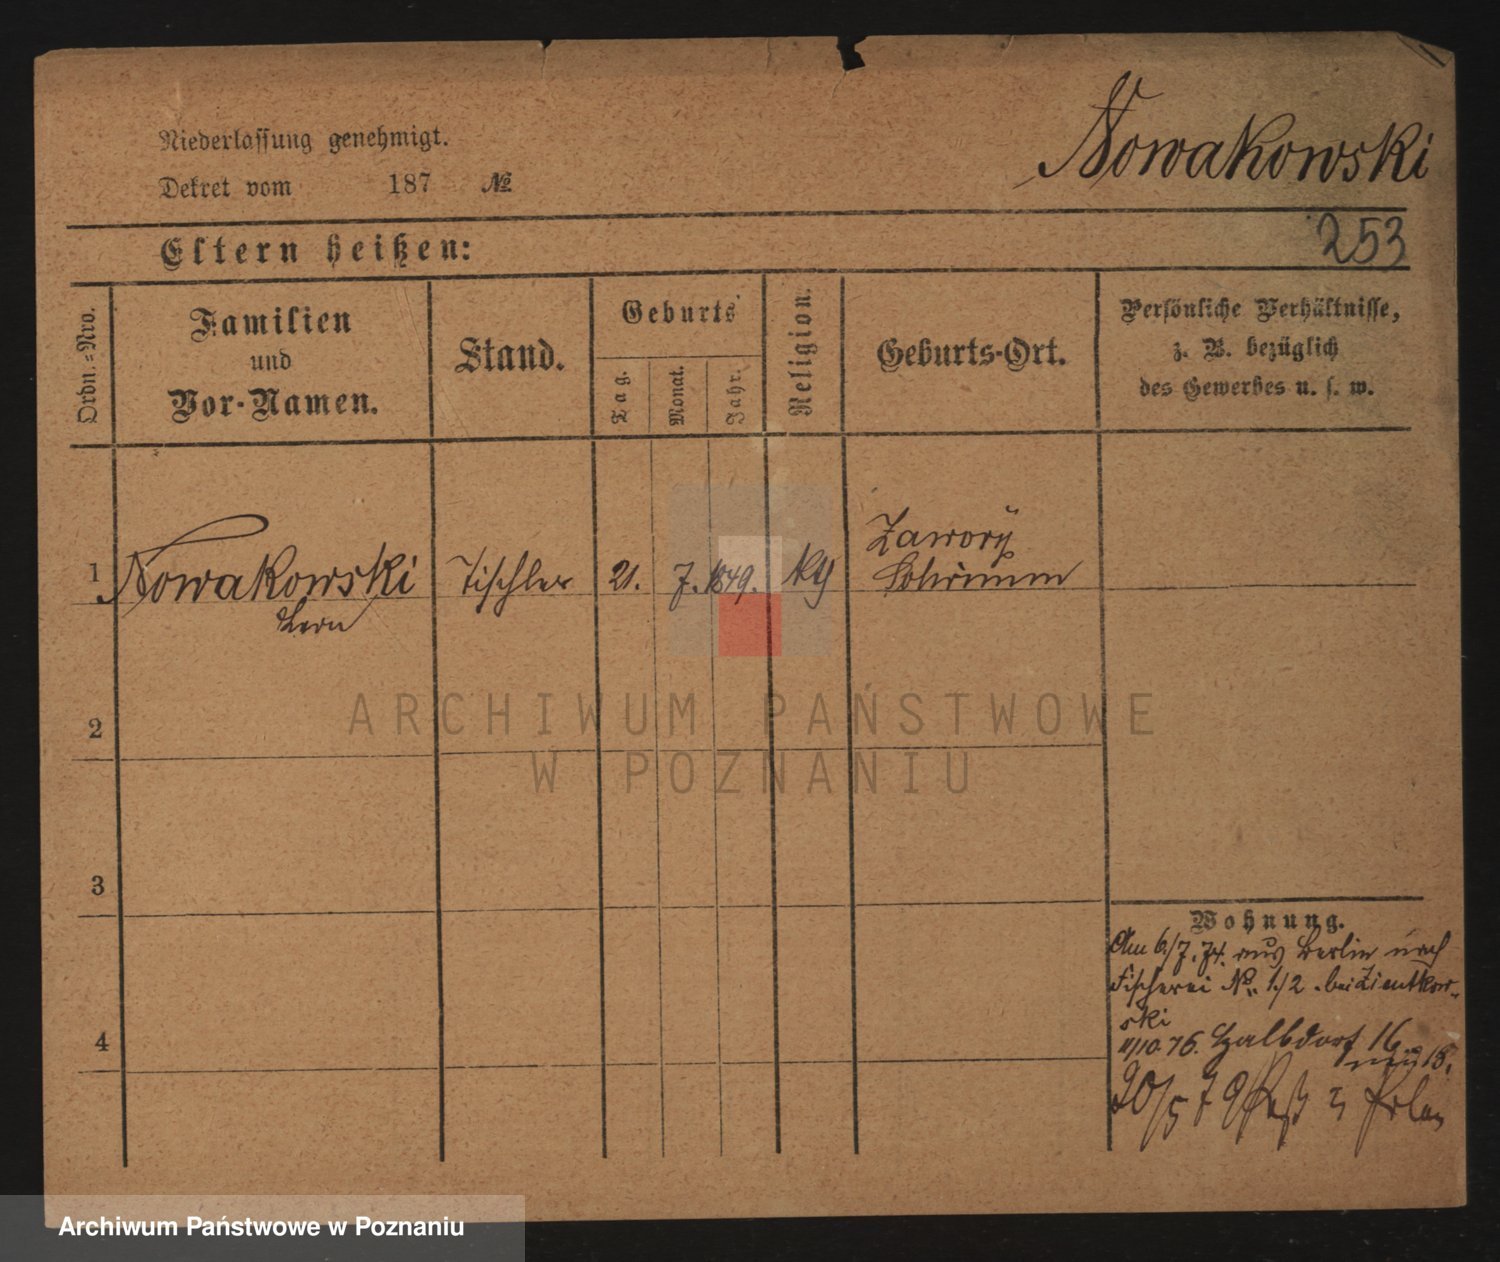 Nowakowski
Niederlassung genehmigt.
Dekret vom 187 №
253
Eltern heißen:
Ordn.=Nro.
Familien
und
Vor-Namen.
Stand.
Geburts
Tag.
Monat.
Jahr.
Religion.
Geburts-Ort.
Persönliche Verhältnisse,
z. B. bezüglich
des Gewerbes u. s. w.
1
Nowakowski
Leon
Tischler
21.
7.
1849.
Zawory
Schrimm
2
ARCHIWUM PAŃSTWOWE
W POZNANIU
3
4
Wohnung.
Am 6/7. 74. aus Berlin nach
Fischerei No. 1/2 bei Zientkow-
ski
11/10. 76. Halbdorf 16
neu 18.
20/5 79
Archiwum Państwowe w Poznaniu